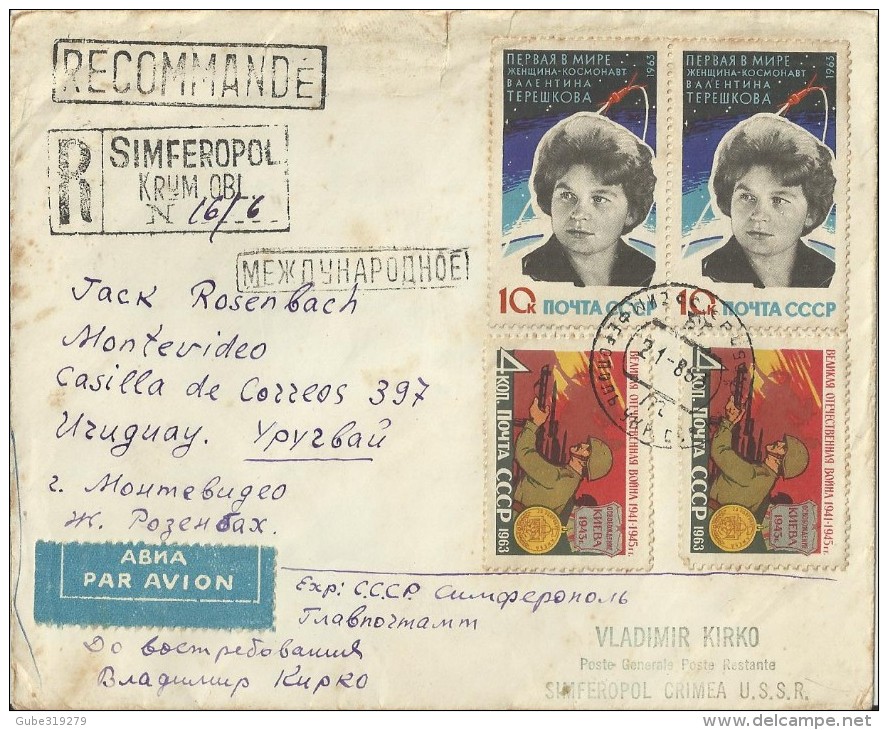 RECOMMANDÉ
R
SIMFEROPOL
KRYM. OBL.
N 16/6
МЕЖДУНАРОДНОЕ
Jack Rosenbach
Montevideo
Casilla de Correos 397
Uruguay. Уругвай
г. Монтевидео
Ж. Розенбах.
АВИА
PAR AVION
Exp: СССР. Симферополь
Главпочтамт
До востребования
Владимир Кирко
VLADIMIR KIRKO
Poste Generale Poste Restante
SIMFEROPOL CRIMEA U.S.S.R.
ПЕРВАЯ В МИРЕ
ЖЕНЩИНА-КОСМОНАВТ
ВАЛЕНТИНА
ТЕРЕШКОВА
1963
10К ПОЧТА СССР
ПЕРВАЯ В МИРЕ
ЖЕНЩИНА-КОСМОНАВТ
ВАЛЕНТИНА
ТЕРЕШКОВА
1963
10К ПОЧТА СССР
4 КОП. ПОЧТА СССР 1963
ВЕЛИКАЯ ОТЕЧЕСТВЕННАЯ ВОЙНА 1941-1945 гг.
ОСВОБОЖДЕНИЕ
КИЕВА
1943г.
4 КОП. ПОЧТА СССР 1963
ВЕЛИКАЯ ОТЕЧЕСТВЕННАЯ ВОЙНА 1941-1945 гг.
ОСВОБОЖДЕНИЕ
КИЕВА
1943г.
Gube319279
www.delcampe.net